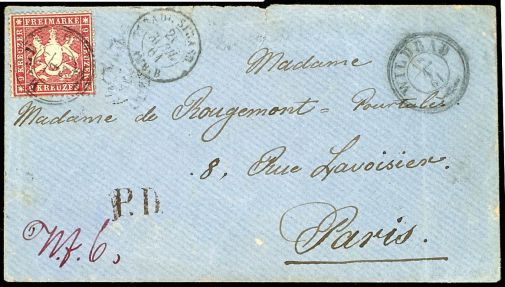 FREIMARKE
9 KREUZER
9 KREUZER
WILDBAD
Madame
Madame de Rougemont - Pourtalès
8, Rue Lavoisier.
P.D
Paris.